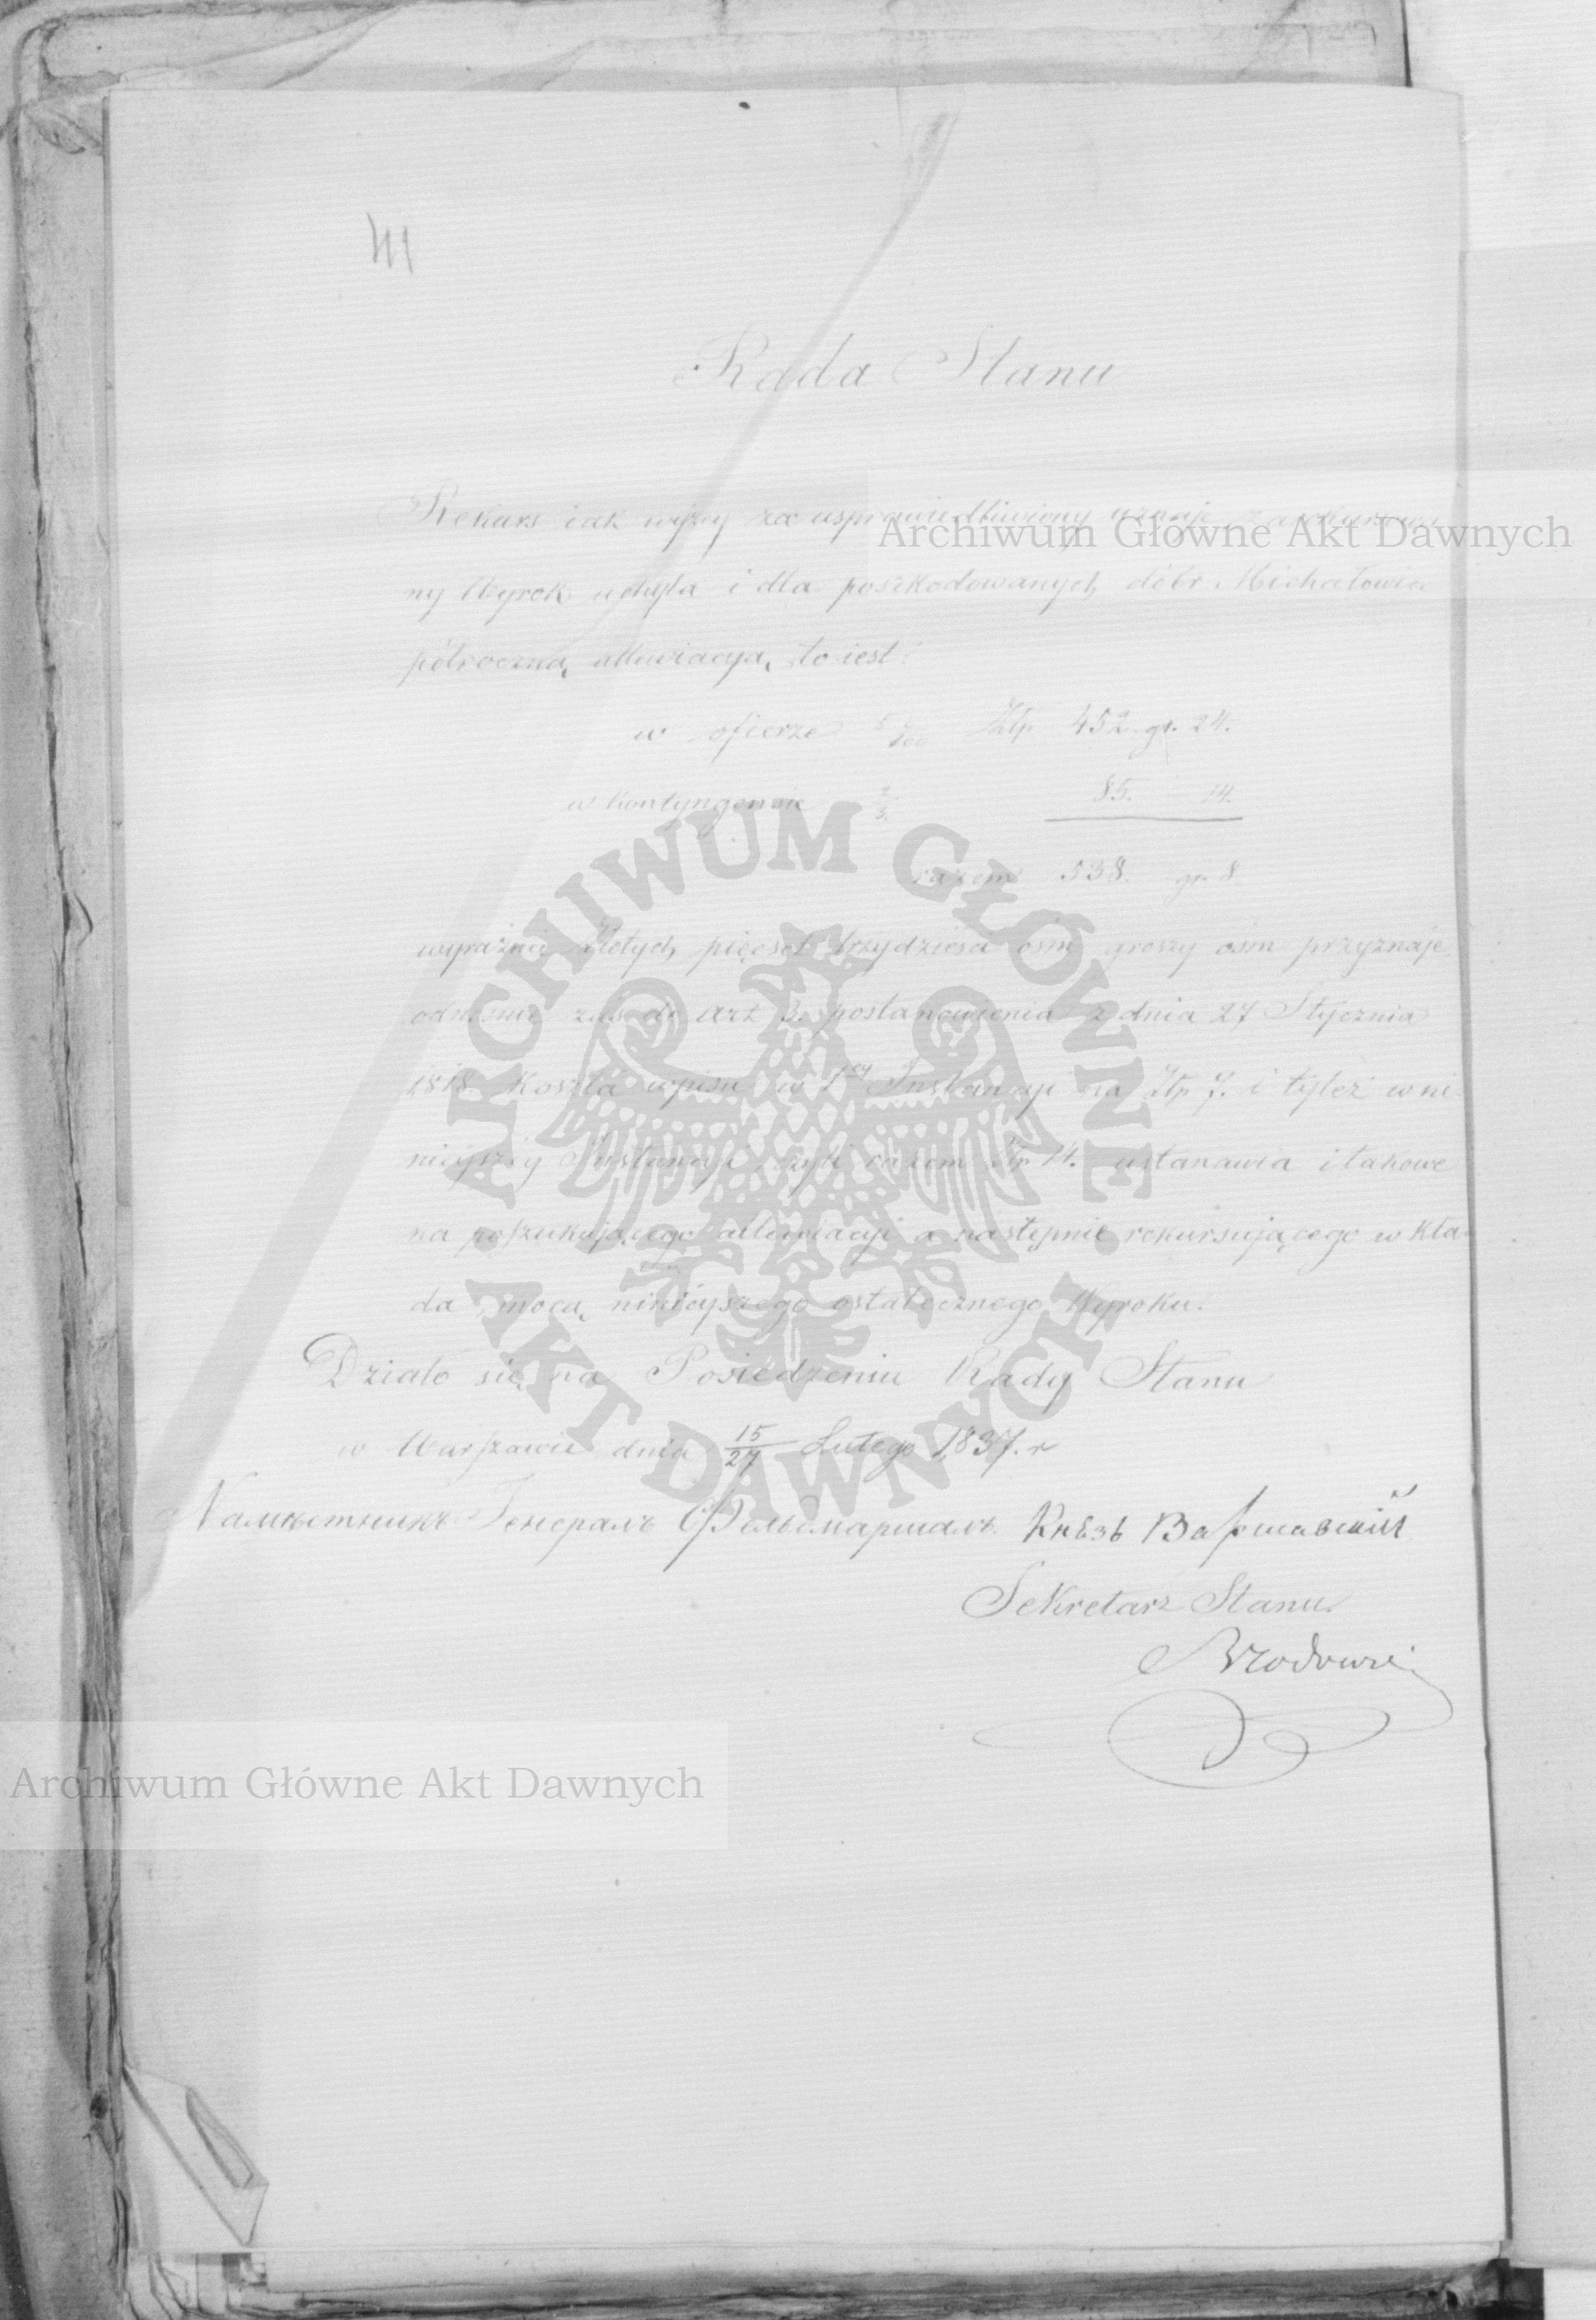 41
Rada Stanu
Rekurs iak wyżey za usprawiedliwiony uznaje, zaskarżo-
ny Wyrok uchyla i dla poszkodowanych dóbr Michałowice
półroczną allewiacyą, to iest:
w ofierze Złp 452 gr. 24.
w kontyngensie 85. 14.
razem 538. gr. 8
wyraźnie Złotych pięćset trzydzieści ośm groszy ośm przyznaje,
odnośnie zaś do art 3. postanowienia z dnia 27 Stycznia
1818. Koszta wpisu w 1ey Instancyi na Złp 7. i tyleż w ni-
nieyszéy Instancyi czyli razem Złp 14. ustanawia i takowe
na poszukującego allewiacyi a następnie rekursującego wkła-
da, mocą ninieyszego ostatecznego Wyroku.
Działo się na Posiedzeniu Rady Stanu
w Warszawie dnia 15/27 Lutego 1837. r
Намѣстникъ Генералъ Фельдмаршалъ Князь Варшавскій
Sekretarz Stanu.
Brodowski
Archiwum Główne Akt Dawnych
ARCHIWUM GŁÓWNE
AKT DAWNYCH
Archiwum Główne Akt Dawnych